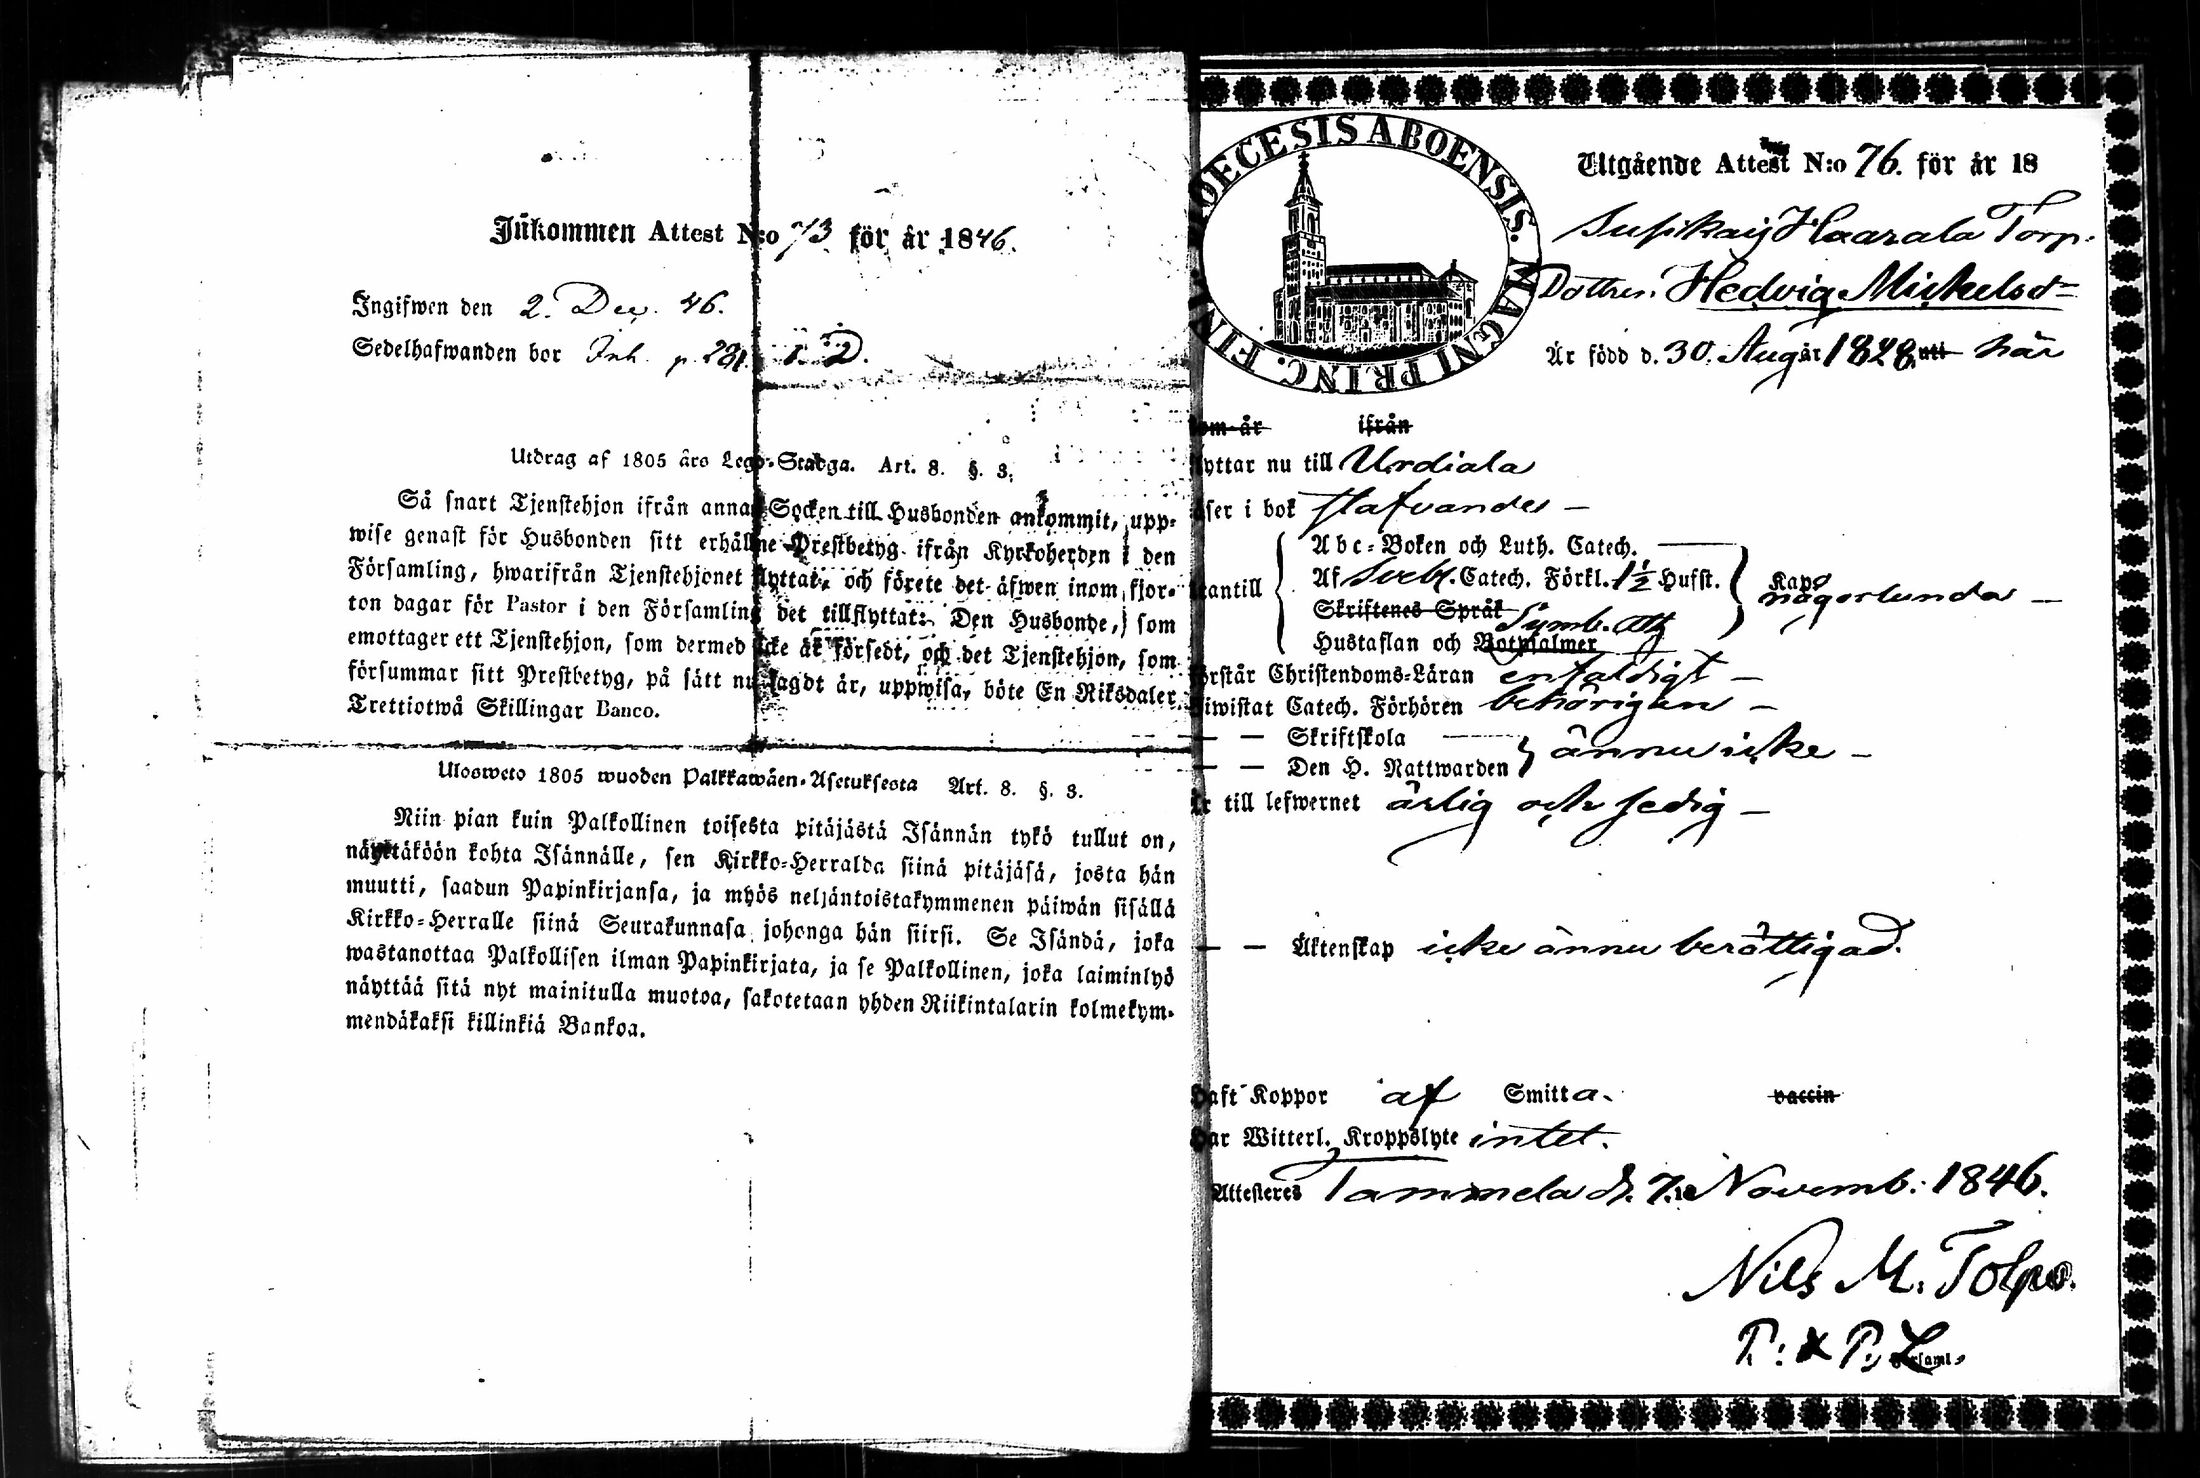 Inkommen Attest N:o 73 för år 1846.
Ingifwen den 2. Dec. 46.
Sedelhafwanden bor Inh. p. 281.
Utdrag af 1805 års Lego-Stadga. Art. 8. §. 3.
Så snart Tjenstehjon ifrån annan Socken till Husbonden ankommit, upp-
wise genast för Husbonden sitt erhållne Prestbetyg ifrån Kyrkoherden i den
Församling, hwarifrån Tjenstehjonet flyttat, och förete det äfwen inom fjor-
ton dagar för Pastor i den Församling det tillflyttat: Den Husbonde, som
emottager ett Tjenstehjon, som dermed icke är försedt, och det Tjenstehjon, som
försummar sitt Prestbetyg, på sätt nu sagdt är, uppwisa, böte En Riksdaler
Trettiotwå Skillingar Banco.
Ulosweto 1805 wuoden Palkkawäen-Asetuksesta Art. 8. §. 3.
Niin pian kuin Palkollinen toisesta pitäjästä Isännän tykö tullut on,
näyttäköön kohta Isännälle, sen Kirkko-Herralda siinä pitäjäsä, josta hän
muutti, saadun Papinkirjansa, ja myös neljäntoistakymmenen päiwän sisällä
Kirkko-Herralle siinä Seurakunnasa johonga hän siirsi. Se Isändä, joka
wastanottaa Palkollisen ilman Papinkirjata, ja se Palkollinen, joka laiminlyö
näyttää sitä nyt mainitulla muotoa, sakotetaan yhden Riikintalarin kolmekym-
mendäkaksi killinkiä Bankoa.
DIOECESIS ABOENSIS. MAGNI PRINC. FINL.
Utgående Attest N:o 76. för år 18
Susikais Haarala Torp.
Dottren. Hedvig Mickelsd:r
Är född d. 30. Aug. år 1828. uti här
om år ifrån
lyttar nu till Urdiala
äser i bok stafvandes —
Abc-Boken och Luth. Catech. —
utantill Af Sveb. Catech. Förkl. 1½ Hufst. Kap.
Skriftenes Språk någorlunda —
Symb. Ath
Hustaflan och Botpsalmer
örstår Christendoms-Läran enfaldigt —
iwistat Catech. Förhören behörigen —
— — Skriftskola — ännu icke —
— — Den H. Nattwarden
är till lefwernet ärlig och sedig —
— — Äktenskap icke ännu berättigad.
Haft Koppor af Smitta. vaccin
Har Witterl. Kroppslyte intet.
Attesteres Tammela d. 7. Novemb. 1846.
Nils M. Tolpo.
P: & P. L.